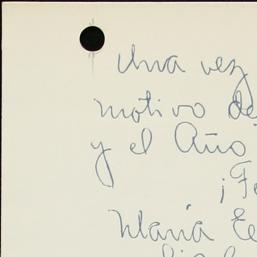 Una vez
motivo de
y el Año
¡Fe
María Te